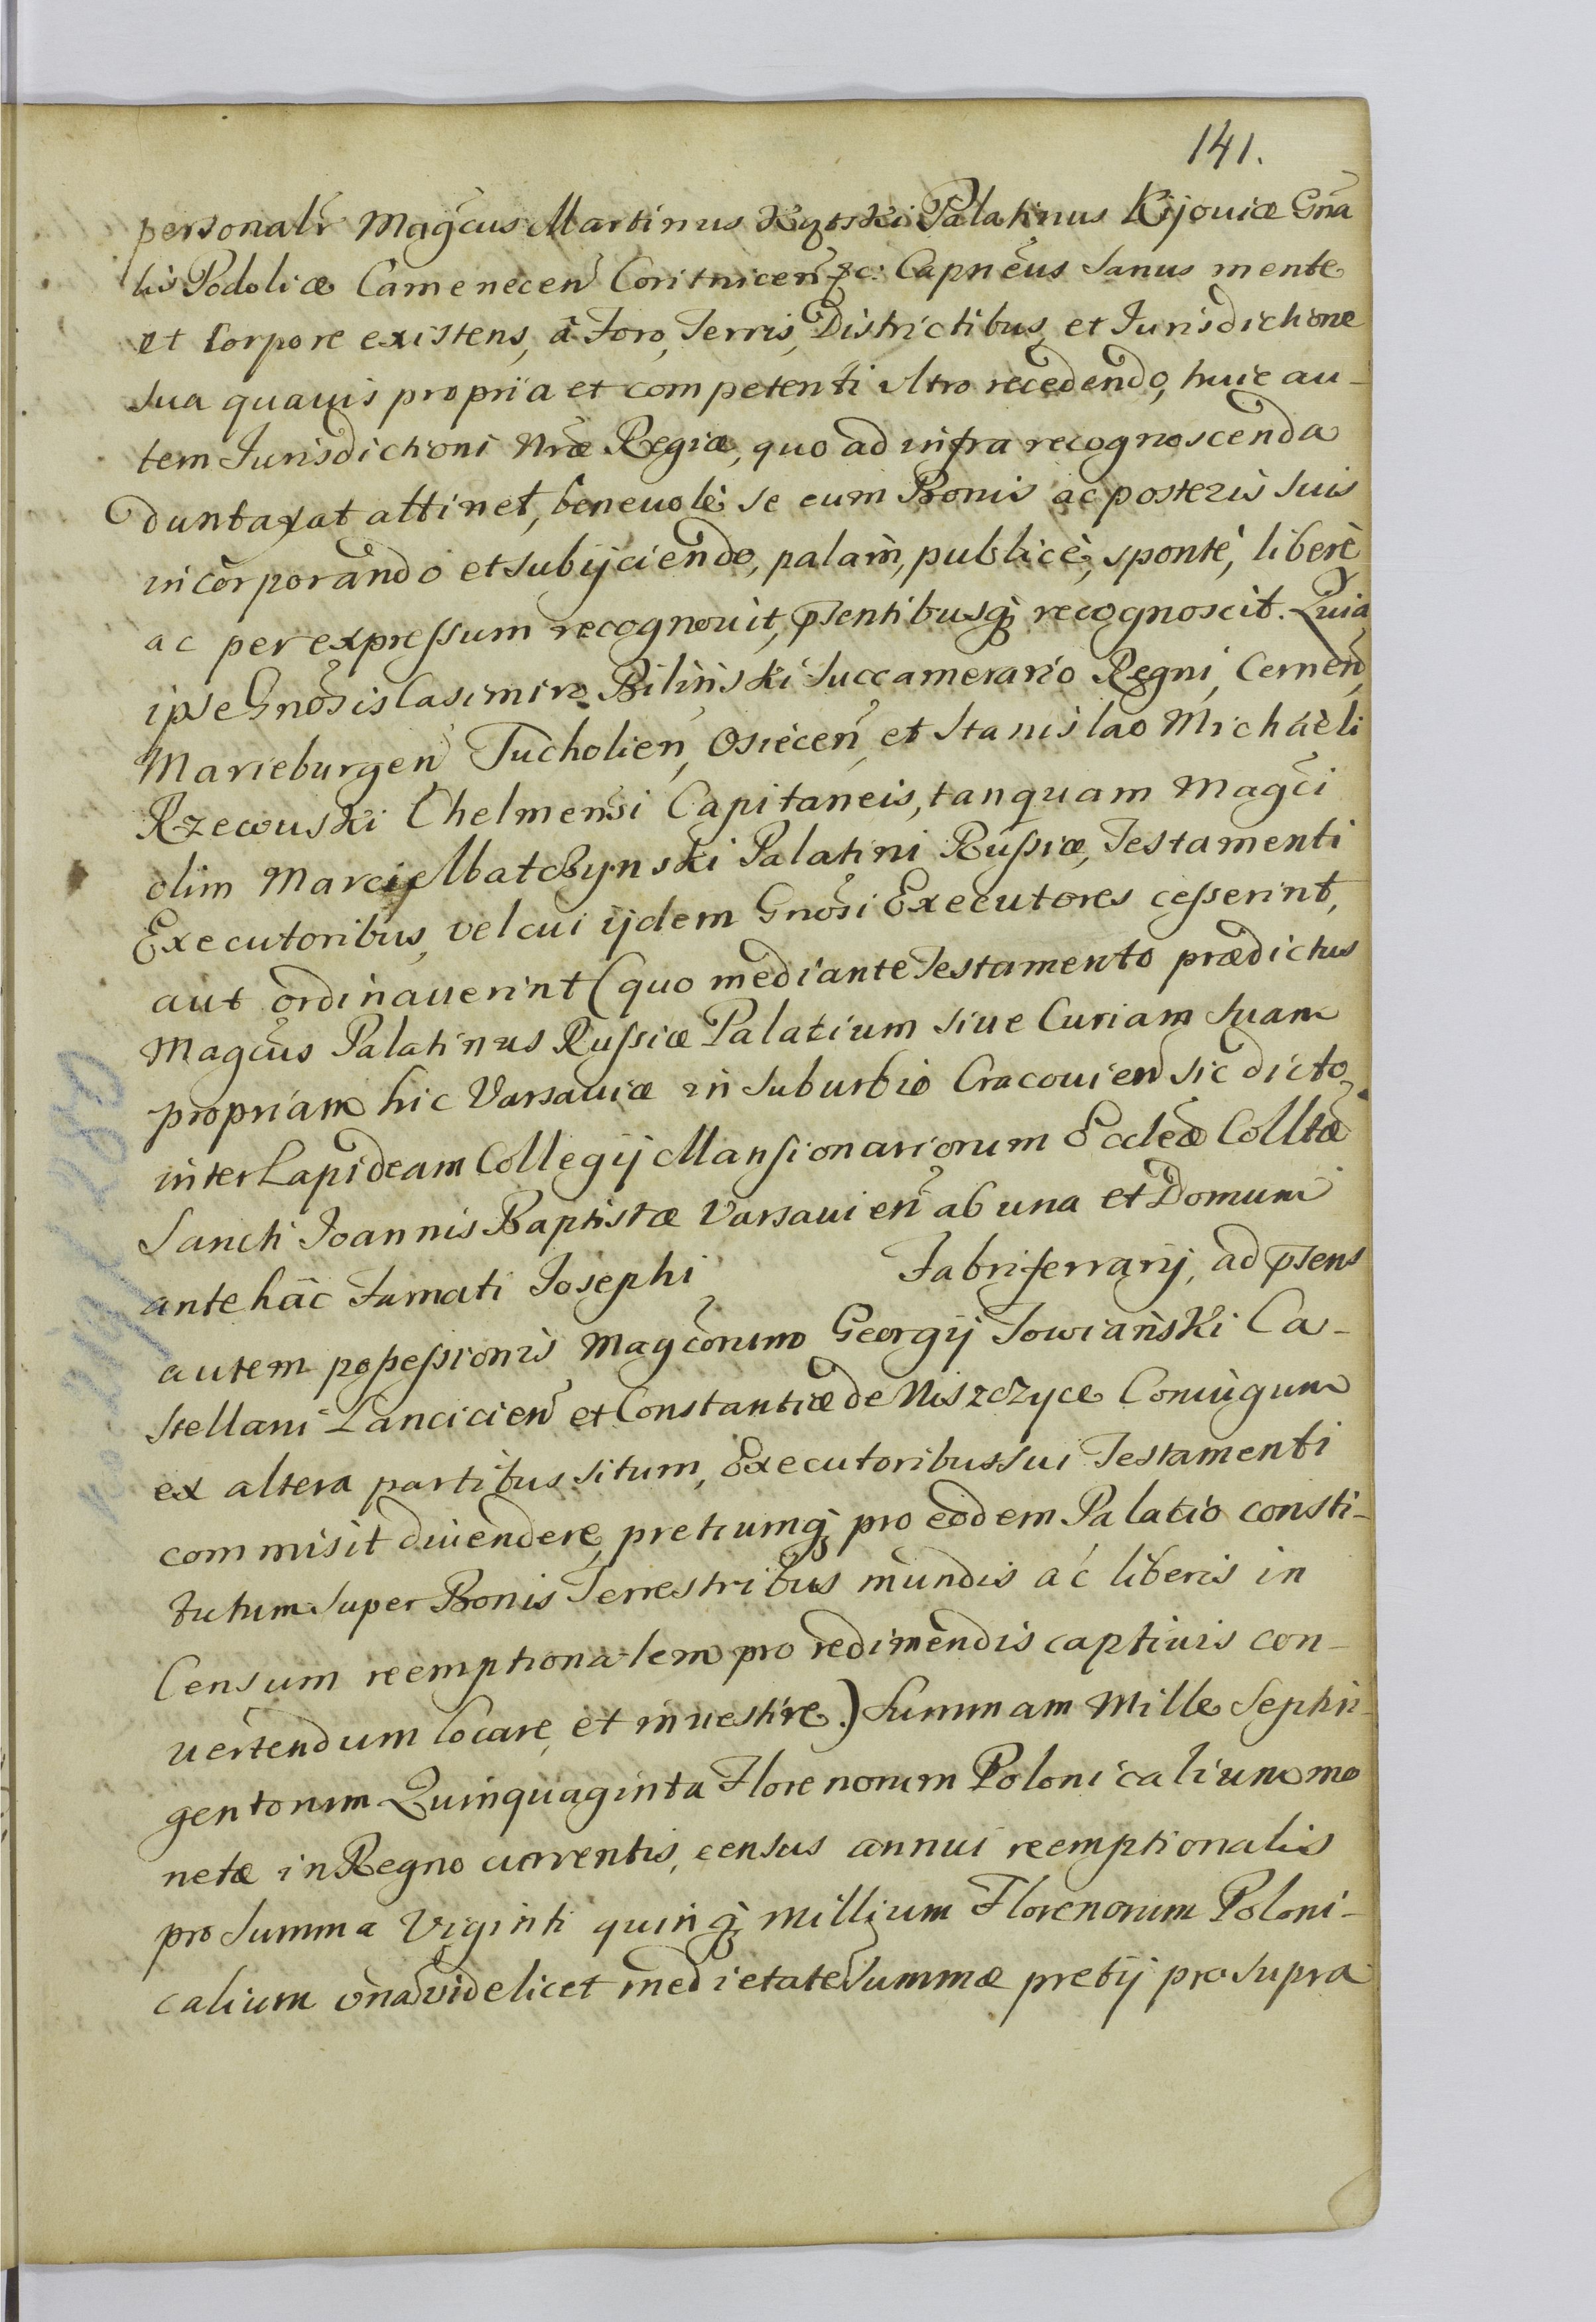 141.
personalr Magcus Martinus Kątski Palatinus Kijouiæ Gna
lis Podoliæ Camenecen Coritnicen &c: Capneus Sanus mente
et Corpore existens, â Foro, Terris, Districtibus, et Jurisdictione
Sua quauis propria et competenti ultro recedendo, huic au-
tem Jurisdictioni Nræ Regiæ, quo ad infra recognoscenda
duntaxat attinet, beneuolè se cum Bonis ac posteris Suis
incorporando et subijciendo, palàm, publicè, spontè, liberè
ac per expressum recognouit, pntibusq; recognoscit. Quia
ipse Gnosis Casimiro Biliński Succamerario Regni, Cernen,
Marieburgen Tucholien, Osiecen, et Stanislao Michaeli
Rzewuski Chelmensi Capitaneis, tanquam Magci
olim Marci Matczynski Palatini Russiæ, Testamenti
Executoribus, vel cui ijdem Gnosi Executores cesserint,
aut ordinauerint (quo mediante Testamento prædictus
Magcus Palatinus Russiæ Palatium siue Curiam Suam
propriam hic Varsauiæ in Suburbio Cracouien sic dicto
inter Lapideam Collegij Mansionariorum Eccleæ Colltæ
Sancti Joannis Baptistæ Varsauien ab una et Domum
antehâc Famati Josephi Fabriferrarij, ad psens
autem possessionis Magcorum Georgij Towiański Ca-
stellani Lancicien et Constantiæ de Niszczyce Coniugum
ex altera partibus situm, Executoribus sui Testamenti
commisit diuendere, pretiumq; pro eodem Palatio consti-
tutum super Bonis Terrestribus mundis ac liberis in
Censum reemptionalem pro redimendis captiuis con-
uertendum locare, et inuestire.) Summam Mille Septin-
gentorum Quinquaginta Florenorum Polonicalium mo
netæ in Regno currentis, census annui reemptionalis
pro Summa Viginti quinq; Millium Florenorum Poloni-
calium una videlicet medietate Summæ pretij pro supra